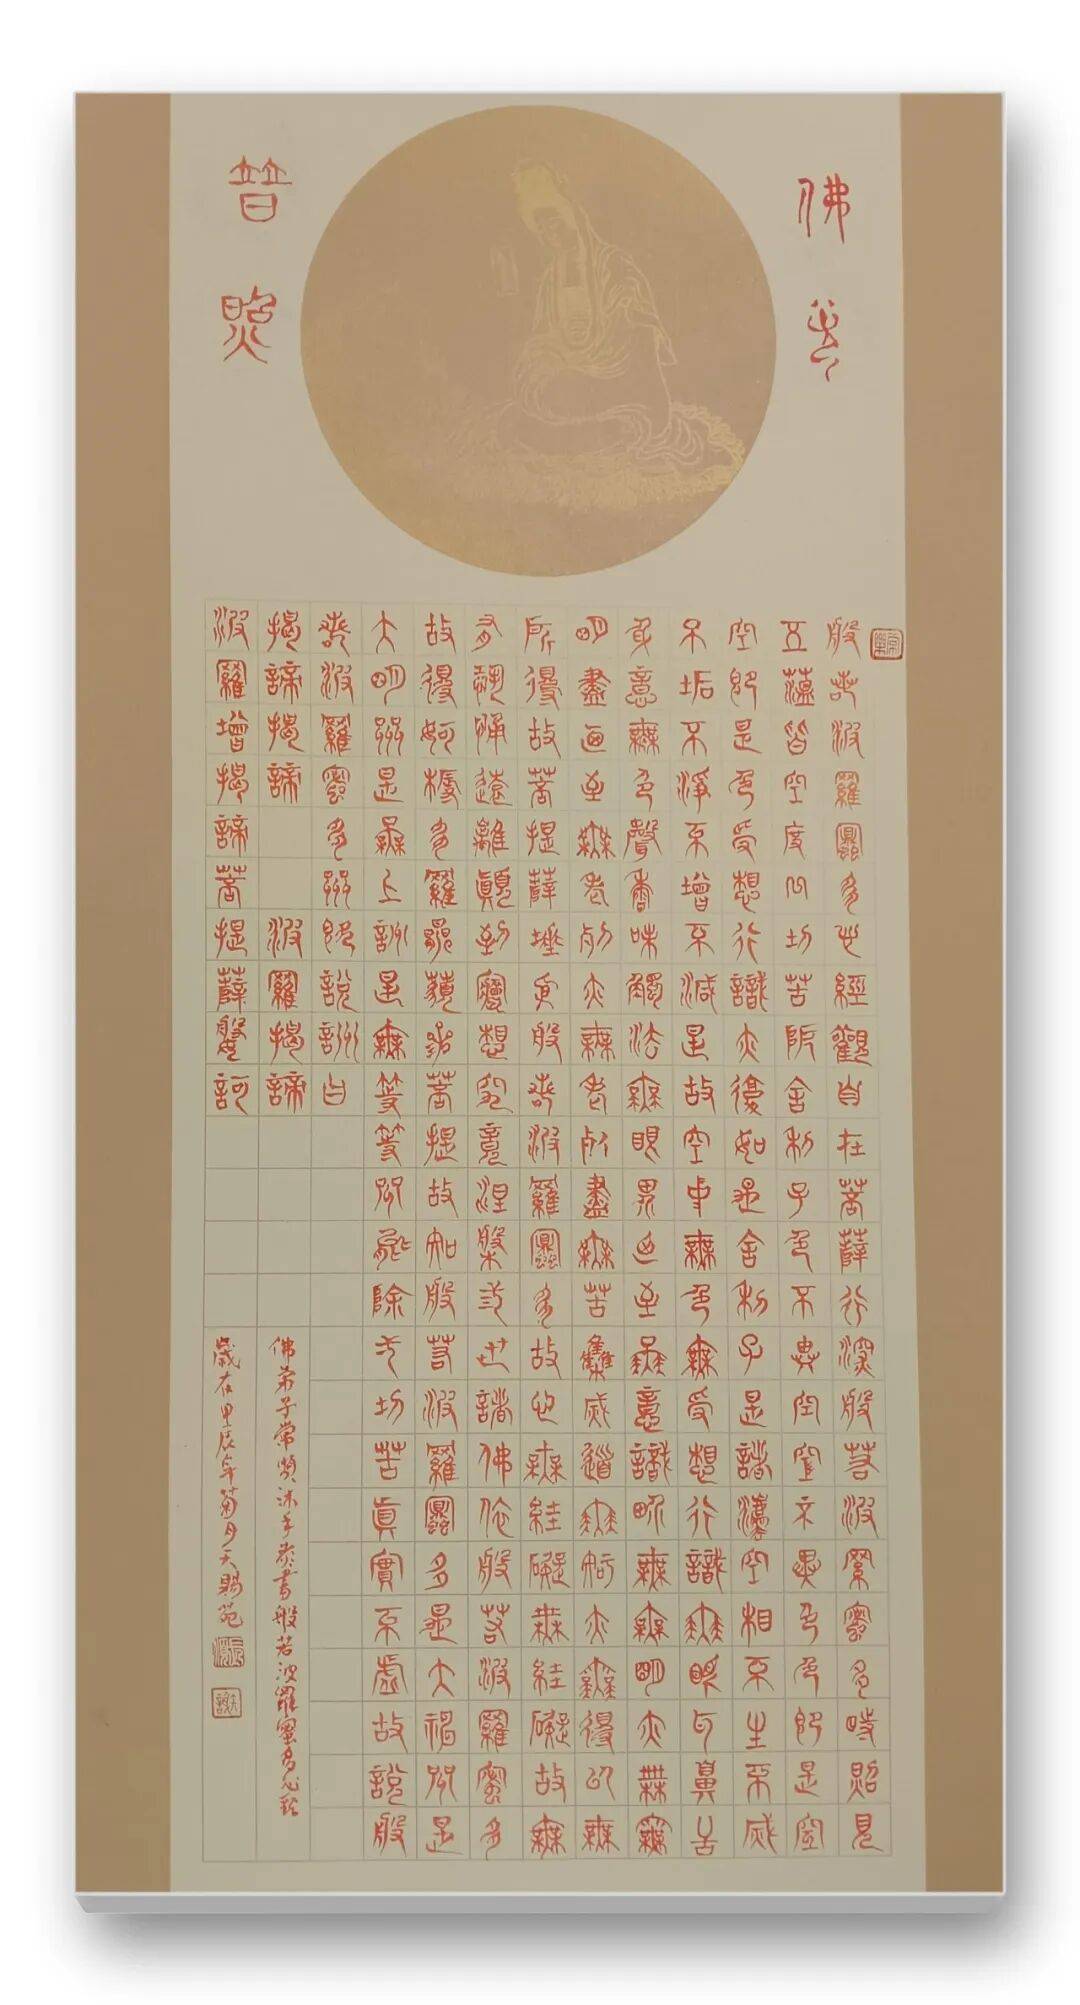 佛光
普照
般若波羅蜜多心經觀自在菩薩行深般若波羅蜜多時照見
五蘊皆空度一切苦厄舍利子色不異空空不異色色即是空
空即是色受想行識亦復如是舍利子是諸法空相不生不滅
不垢不淨不增不減是故空中無色無受想行識無眼耳鼻舌
身意無色聲香味觸法無眼界乃至無意識界無無明亦無無
明盡乃至無老死亦無老死盡無苦集滅道無智亦無得以無
所得故菩提薩埵依般若波羅蜜多故心無罣礙無罣礙故無
有恐怖遠離顛倒夢想究竟涅槃三世諸佛依般若波羅蜜多
故得阿耨多羅三藐三菩提故知般若波羅蜜多是大神咒是
大明咒是無上咒是無等等咒能除一切苦真實不虛故說般
若波羅蜜多咒即說咒曰
揭諦揭諦 波羅揭諦
波羅增揭諦菩提薩婆訶
佛弟子常沐手恭書般若波羅蜜多心經
歲在甲辰年菊月天賜苑